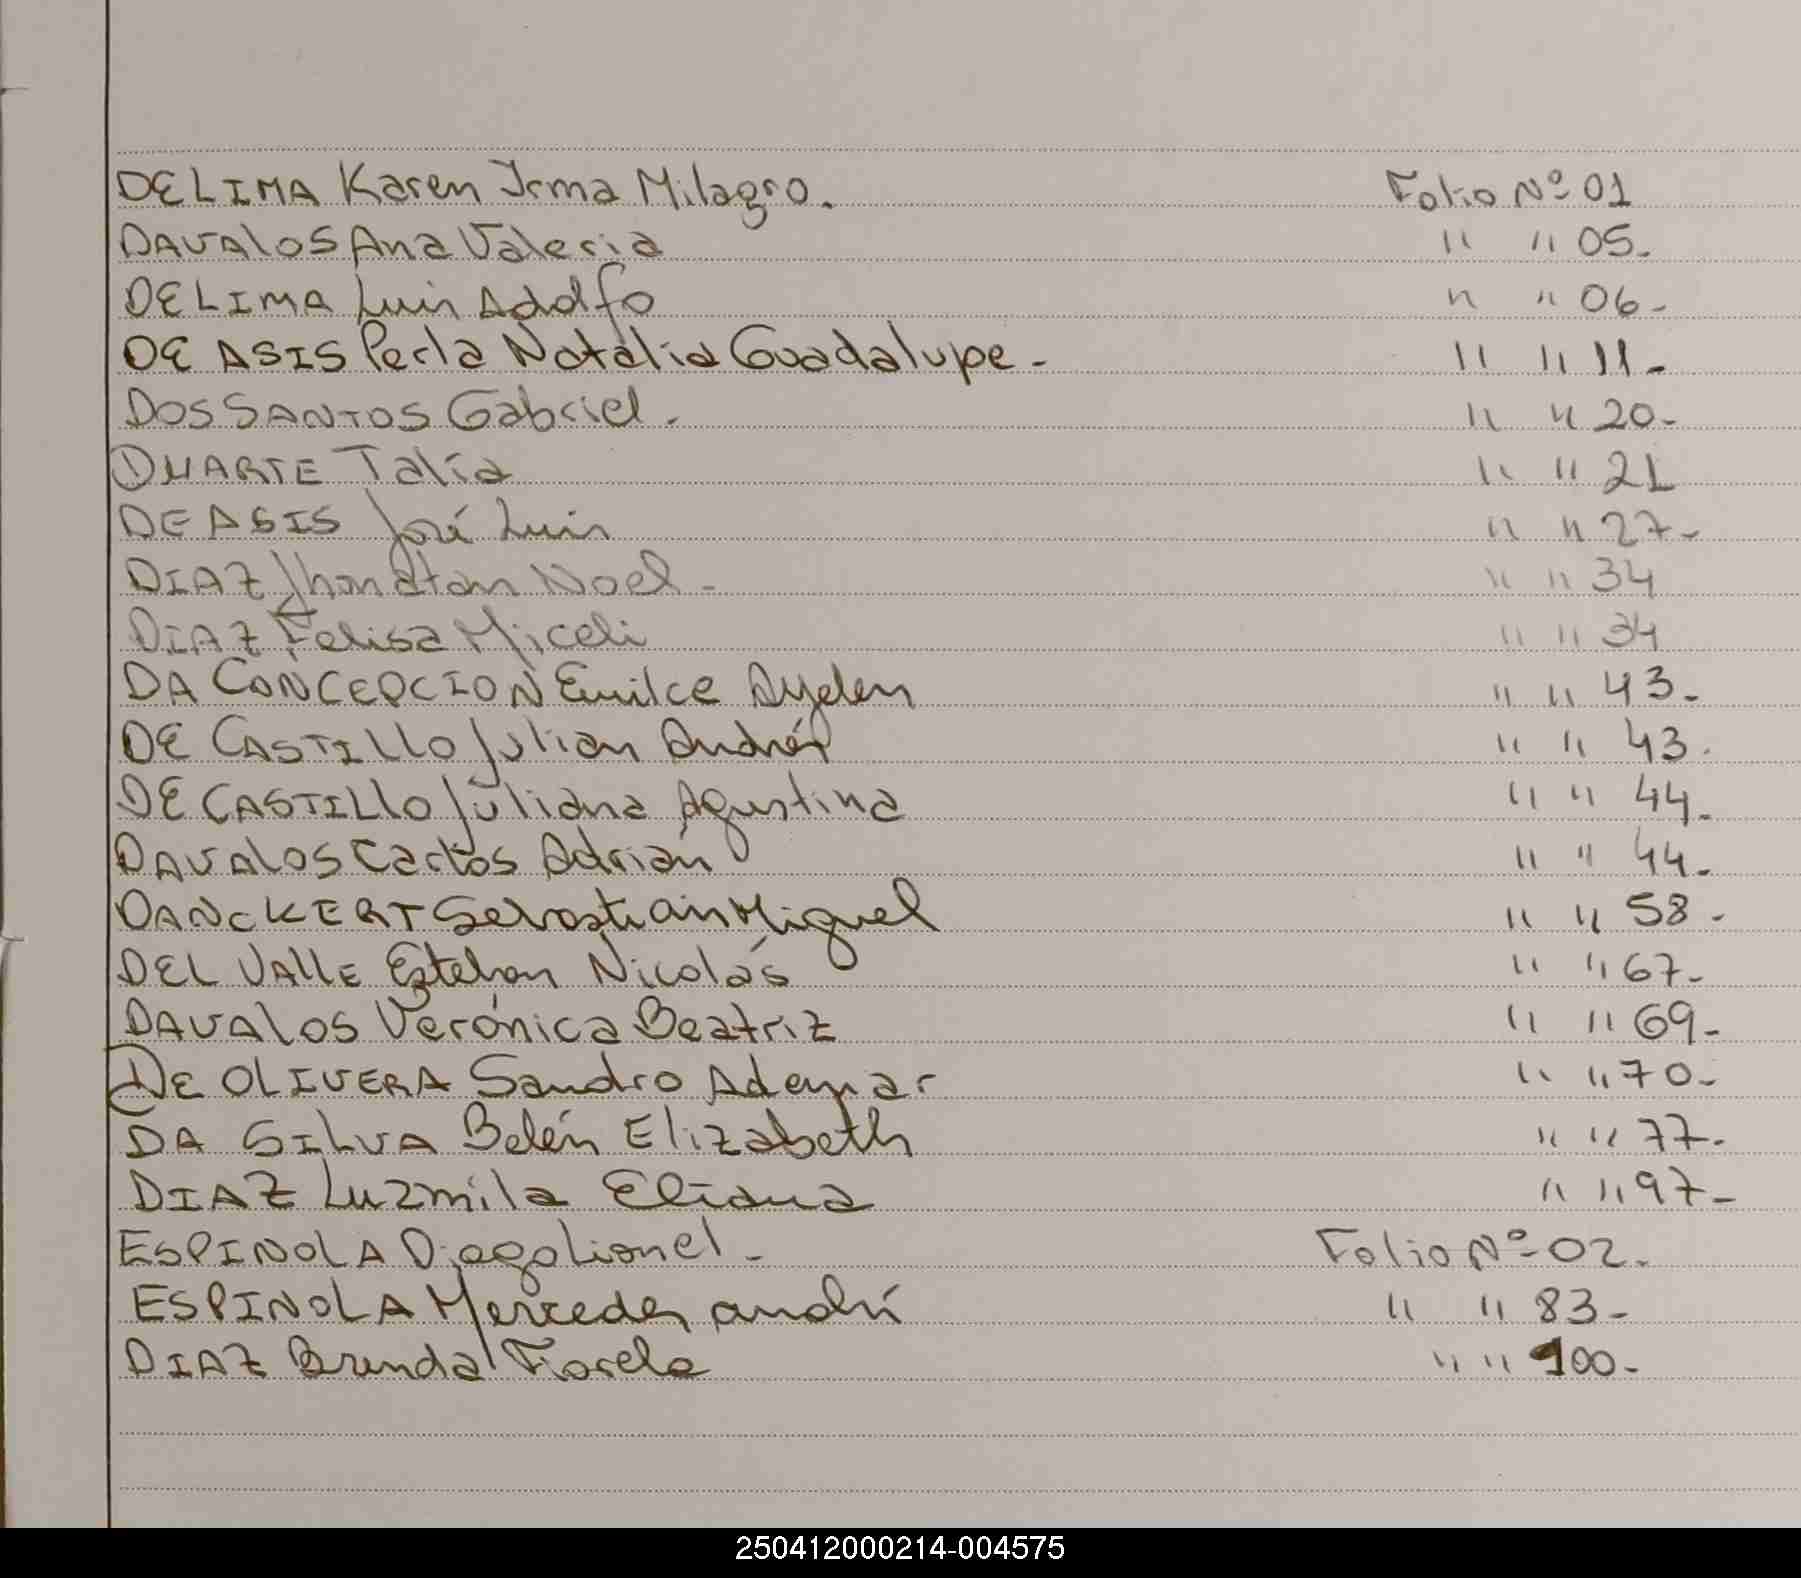 DELIMA Karen Irma Milagro. Folio Nº 01
DAVALOS Ana Valeria " " 05-
DELIMA Luis Adolfo " " 06-
DE ASIS Perla Natalia Guadalupe- " " 11-
DOS SANTOS Gabriel- " " 20-
DUARTE Talía " " 21
DE ASIS José Luis " " 27-
DIAZ Jhonatan Noel- " " 34
DIAZ Felisa Miceli " " 34
DA CONCEPCION Emilce Ayelen " " 43-
DE CASTILLO Julian Andrés " " 43.
DE CASTILLO Juliana Agustina " " 44-
DAVALOS Carlos Adrián " " 44-
DANCKERT Sevastian Miguel " " 58-
DEL VALLE Esteban Nicolás " " 67-
DAVALOS Verónica Beatriz " " 69-
DE OLIVERA Sandro Ademar " " 70-
DA SILVA Belén Elizabeth " " 77-
DIAZ Luzmila Eliana " " 97-
ESPINOLA Diego Lionel- Folio Nº 02.
ESPINOLA Mercedes " " 83-
DIAZ Brenda Fiorela " " 100-
250412000214-004575